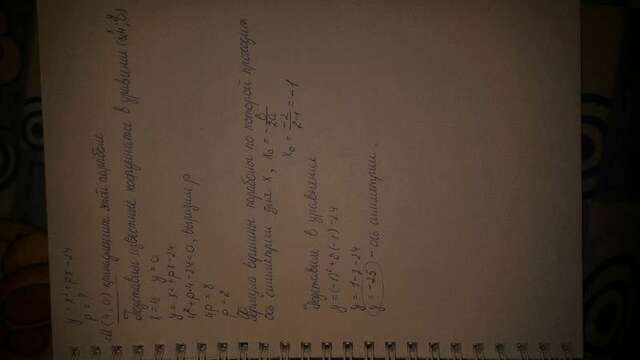 y = x² + px - 24
p = ?
M (4, 0) принадлежит этой параболе
Подставим известные координаты в уравнения
x = 4 y = 0
y = x² + px - 24
4² + p·4 - 24 = 0, выразим p
4p = 8
p = 2
Формула вершины параболы по которой проходит
ось симметрии для x, x₀ = -b/2a
x₀ = -2/2·1 = -1
Подставим в уравнения
y = (-1)² + 2(-1) - 24
y = 1 - 2 - 24
y = -25 - ось симметрии.